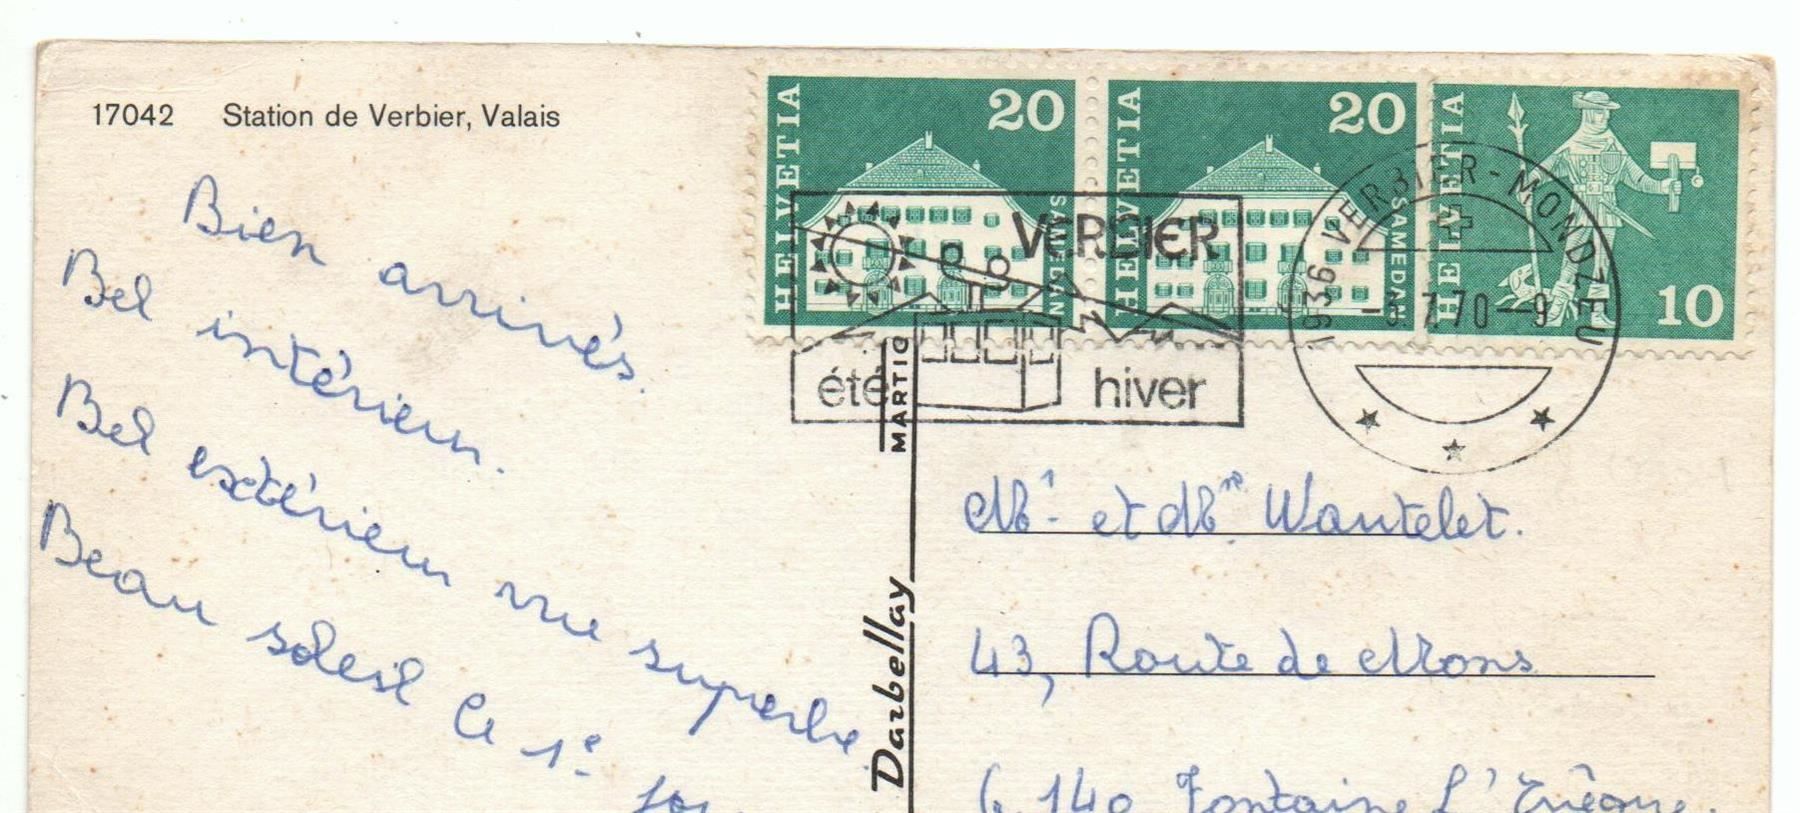 17042 Station de Verbier, Valais
Bien arrivés.
Bel intérieur.
Bel extérieur vue superbe.
Beau soleil le 1e
HELVETIA 20 SAMEDAN
HELVETIA 20 SAMEDAN
HELVETIA 10
VERBIER
été hiver
1936 VERBIER-MONDZEU
-3.7.70-9
MARTIG
Darbellay
Mr et Mme Wautelet.
43, Route de Mons
6.140 Fontaine L'Evêque.